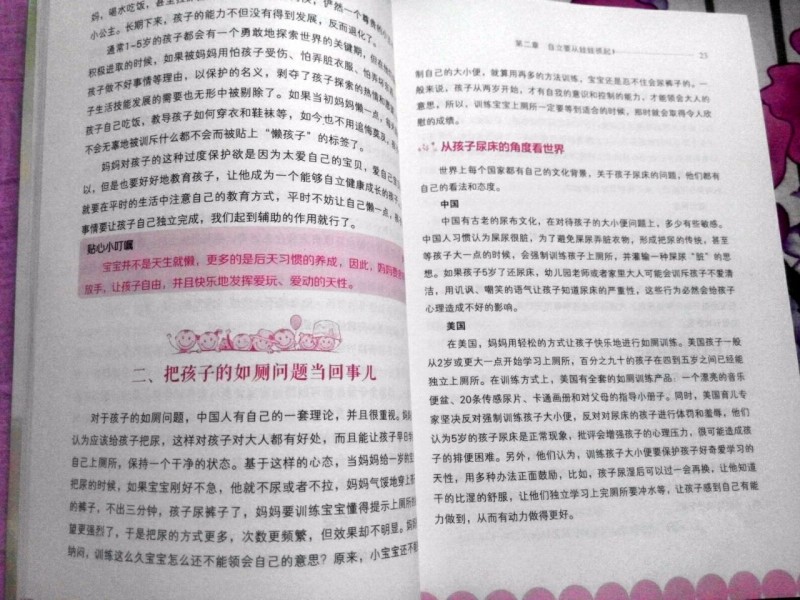 妈，喝水吃饭，甚至
小公主。长期下来，孩子的能力不但没有得到发展，反而退化了。
通常1~5岁的孩子都会有一个勇敢地探索世界的关键期，但在
积极进取的时候，如果被妈妈用怕孩子受伤、怕弄脏衣服、怕弄坏
孩子做不好事情等理由，以保护的名义，剥夺了孩子探索的热情和
子生活技能发展的需要也无形中被剔除了。如果当初妈妈懒一点，
孩子自己吃饭，教导孩子如何穿衣和鞋袜等，如今也不用追悔莫及，
不会无辜地被训斥什么都不会而被贴上“懒孩子”的标签了。
妈妈对孩子的这种过度保护欲是因为太爱自己的宝贝，爱自己
以，但是也要好好地教育孩子，让他成为一个能够自立健康成长的孩子，
就要在平时的生活中注意自己的教育方式，平时不妨让自己懒一点，
事情要让孩子自己独立完成，我们起到辅助的作用就行了。
贴心小叮嘱
宝宝并不是天生就懒，更多的是后天习惯的养成，因此，妈妈
放手，让孩子自由，并且快乐地发挥爱玩、爱动的天性。
二、把孩子的如厕问题当回事儿
对于孩子的如厕问题，中国人有自己的一套理论，并且很重视。
认为应该给孩子把尿，这样对孩子对大人都有好处，而且能让孩子早日
自己上厕所，保持一个干净的状态。基于这样的心态，当妈妈给一岁的
把尿的时候，如果宝宝刚好不急，他就不尿或者不拉，妈妈气馁地穿上
的裤子，不出三分钟，孩子尿裤子了，妈妈要训练宝宝懂得提示上厕所
望更强烈了，于是把尿的方式更多，次数更频繁，但效果却不明显。
纳闷，训练这么久宝宝怎么还不能领会自己的意思？原来，小宝宝还不
第二章 自立要从娃娃抓起 23
制自己的大小便，就算用再多的方法训练，宝宝还是忍不住会尿裤子的。一
般来说，孩子从两岁开始，才有自我的意识和控制的能力，才能领会大人的
意思。所以，训练宝宝上厕所一定要等到适合的时候，那时就会取得令人欣
慰的成绩。
从孩子尿床的角度看世界
世界上每个国家都有自己的文化背景，关于孩子尿床的问题，他们都有
自己的看法和态度。
中国
中国有古老的尿布文化，在对待孩子的大小便问题上，多少有些敏感。
中国人习惯认为屎尿很脏，为了避免屎尿弄脏衣物，形成把尿的传统，甚至
等孩子大一点的时候，会强制训练孩子上厕所，并灌输一种屎尿“脏”的思
想。如果孩子5岁了还尿床，幼儿园老师或者家里大人可能会训斥孩子不爱清
洁，用讥讽、嘲笑的语气让孩子知道尿床的严重性，这些行为必然会给孩子
心理造成不好的影响。
美国
在美国，妈妈用轻松的方式让孩子快乐地进行如厕训练。美国孩子一般
从2岁或更大一点开始学习上厕所，百分之九十的孩子在四到五岁之间已经能
独立上厕所。在训练方式上，美国有全套的如厕训练产品，一个漂亮的音乐
便盆、20条传感尿片、卡通画册和对父母的指导小册子。同时，美国育儿专
家坚决反对强制训练孩子大小便，反对对尿床的孩子进行体罚和羞辱，他们
认为5岁的孩子尿床是正常现象，批评会增强孩子的心理压力，很可能造成孩子
的排便困难。另外，他们认为，训练孩子大小便要保护孩子好奇爱学习的
天性，用多种办法正面鼓励，比如，孩子尿湿后可以过一会再换，让他知道
干的比湿的舒服，让他们独立学习上完厕所要冲水等，让孩子感到自己有能
力做到，从而有动力做得更好。